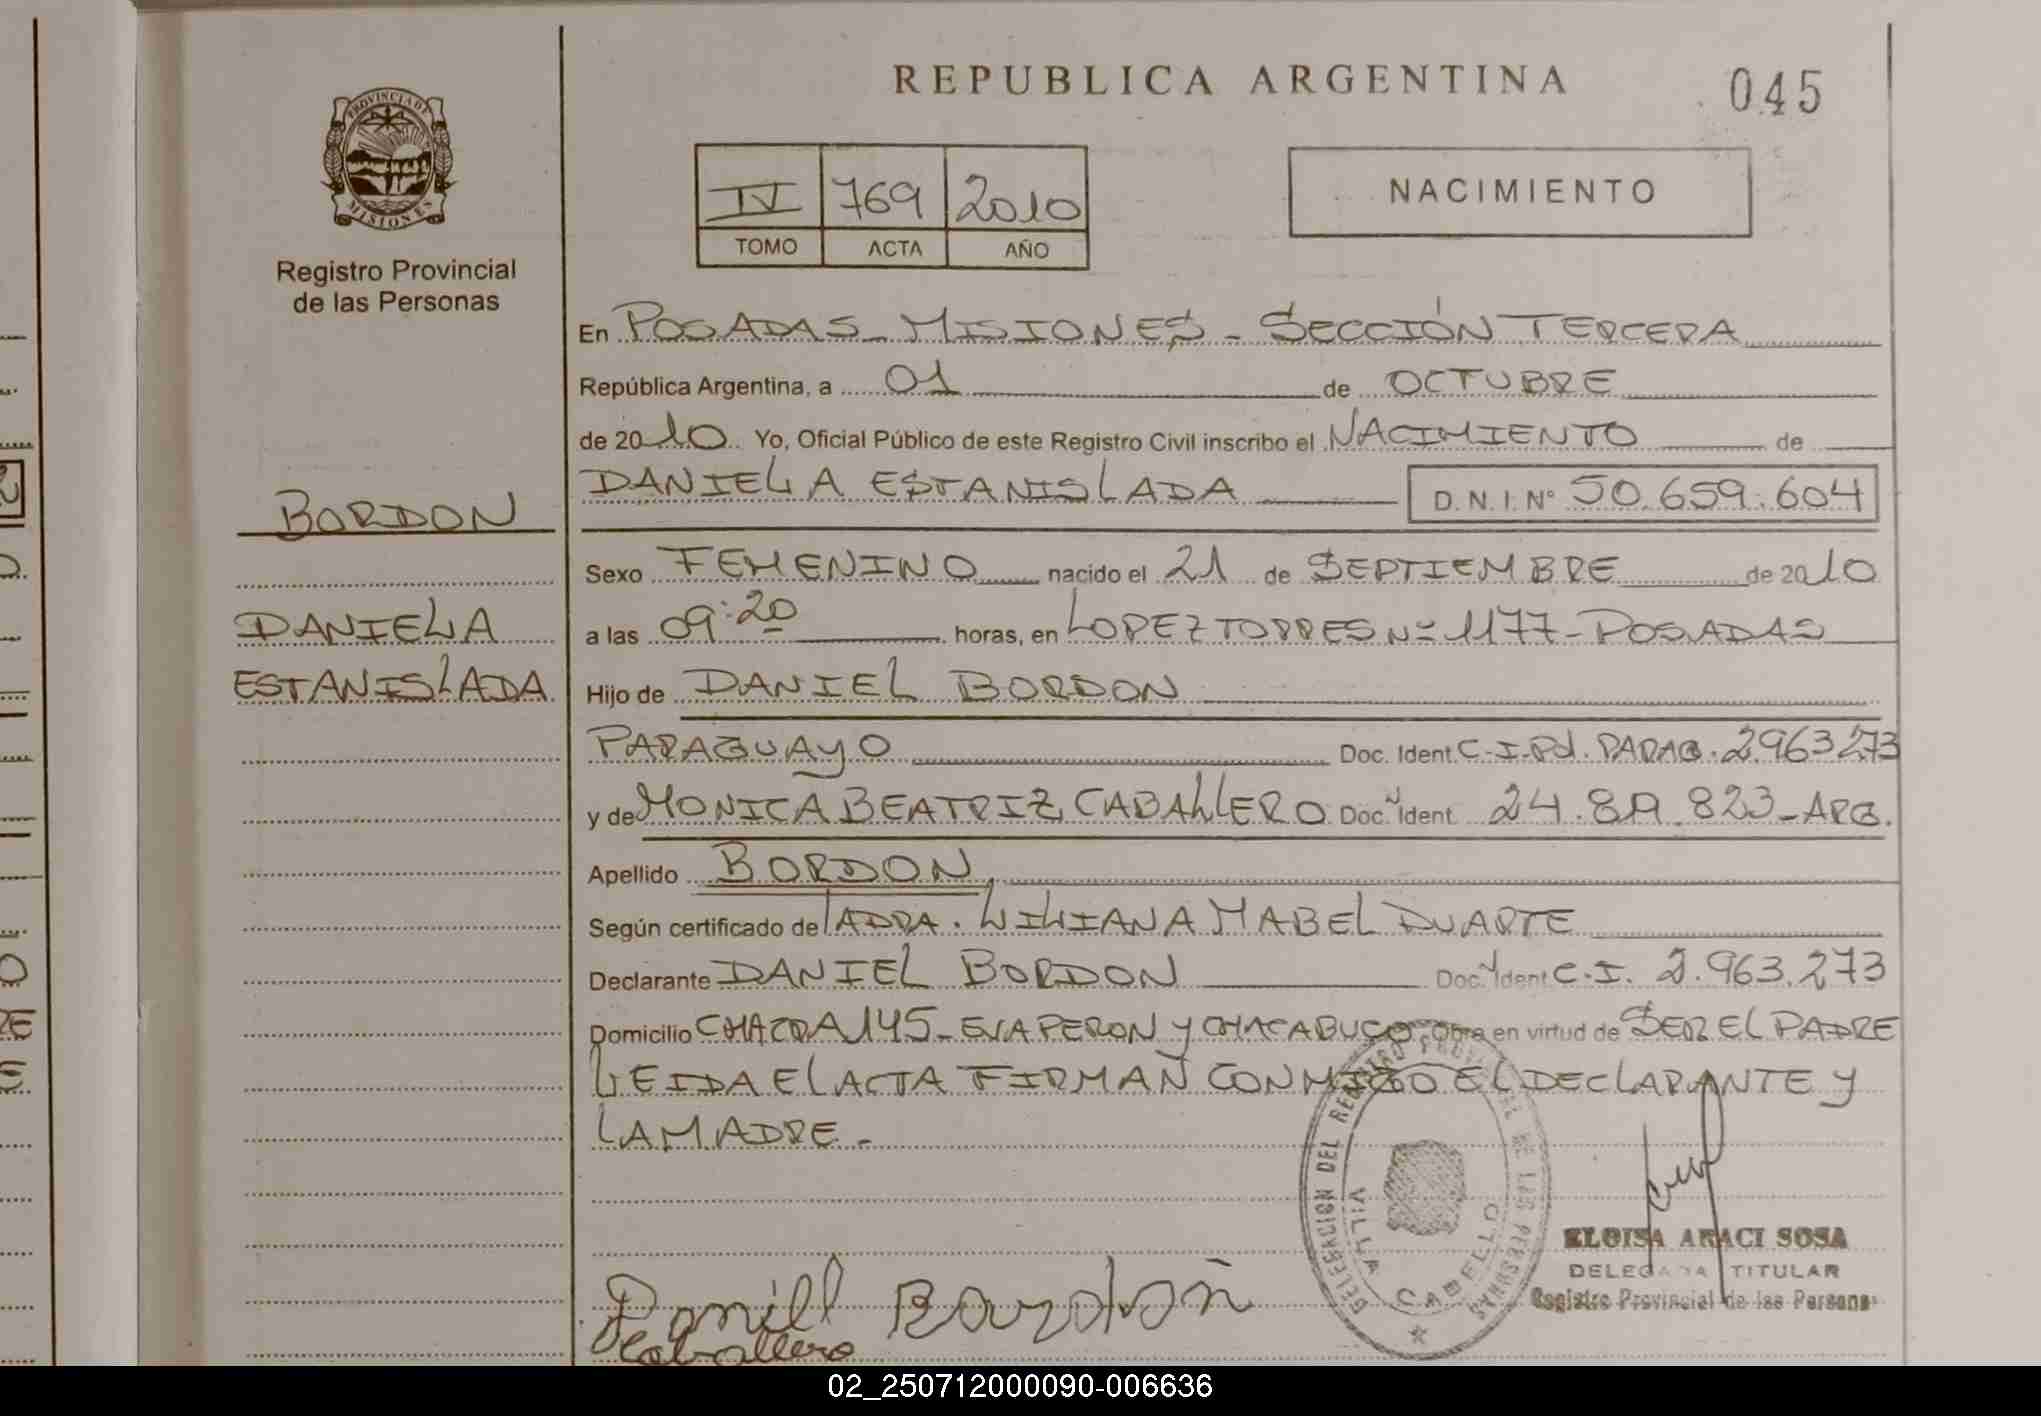 REPUBLICA ARGENTINA
045
PROVINCIA DE
MISIONES
Registro Provincial
de las Personas
IV 769 2010
TOMO ACTA AÑO
NACIMIENTO
En POSADAS - MISIONES - SECCIÓN TERCERA
República Argentina, a 01 de OCTUBRE
de 2010 Yo, Oficial Público de este Registro Civil inscribo el NACIMIENTO de
DANIELA ESTANISLADA D.N.I.Nº 50.659.604
BORDON
DANIELA
ESTANISLADA
Sexo FEMENINO nacido el 21 de SEPTIEMBRE de 2010
a las 09:20 horas, en LOPEZ TORRES Nº 1177 - POSADAS
Hijo de DANIEL BORDON
PARAGUAYO Doc. Ident. C.I.Pol. PARAG. 2963273
y de MONICA BEATRIZ CABALLERO Doc. Ident. 823-ARG.
Apellido BORDON
Según certificado de LILIANA MABEL DUARTE
Declarante DANIEL BORDON Doc. Ident. C.I. 2.963.273
Domicilio CHACRA 145 - EVA PERON Y CHACABUCO Obra en virtud de SER EL PADRE
LEIDA EL ACTA FIRMAN CONMIGO EL DECLARANTE Y
LA MADRE.-
DELEGACION DEL REGISTRO PROVINCIAL DE LAS PERSONAS
CABELLO
ELOISA ARACI SOSA
DELEGADA TITULAR
Registro Provincial de las Personas
Bordón
Caballero
02_250712000090-006636